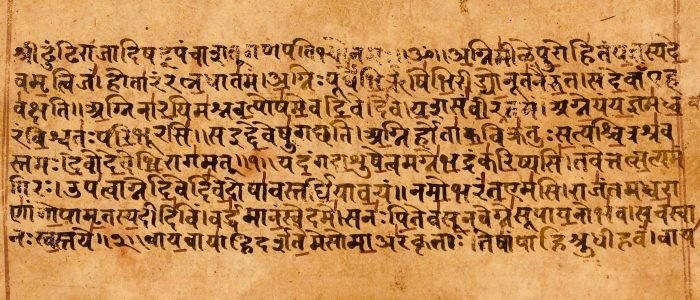 श्रीढुंढिराजादिषट्पंचाशत्गणपतिभ्योनमः॥ॐ॥अग्निमीळेपुरोहितंयज्ञस्यदे
वमृत्विजं।होतारंरत्नधातमं।अग्निःपूर्वेभिर्ऋषिभिरीड्योनूतनैरुत।सदेवाँएह
वक्षति॥अग्निनारयिमश्नवत्पोषमेवदिवेदिवे।यशसंवीरवत्तमं।अग्नेयंयज्ञमध्व
रंविश्वतःपरिभूरसि॥सइद्देवेषुगच्छति।अग्निर्होताकविक्रतुःसत्यश्चित्रश्रव
स्तमः।देवोदेवेभिरागमत्॥१॥यदंगदाशुषेत्वमग्नेभद्रंकरिष्यसि।तवेत्तत्सत्यमं
गिरः।उपत्वाग्नेदिवेदिवेदोषावस्तर्धियावयं॥नमोभरंतएमसि।राजंतमध्वरा
णांगोपामृतस्यदीदिविं।वर्द्धमानंस्वेदमे।सनःपितेवसूनवेग्नेसूपायनोभव।सचस्वा
नःस्वस्तये॥२॥वायवायाहिदर्शतेमेसोमाअरंकृताः।तेषांपाहिश्रुधीहवं।वाय